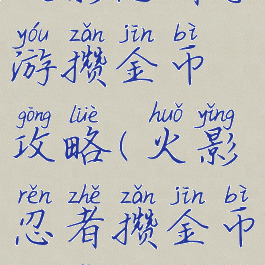 yóu zǎn jīn bì
游攒金币
gōng lüè huǒ yǐng
攻略(火影
rěn zhě zǎn jīn bì
忍者攒金币